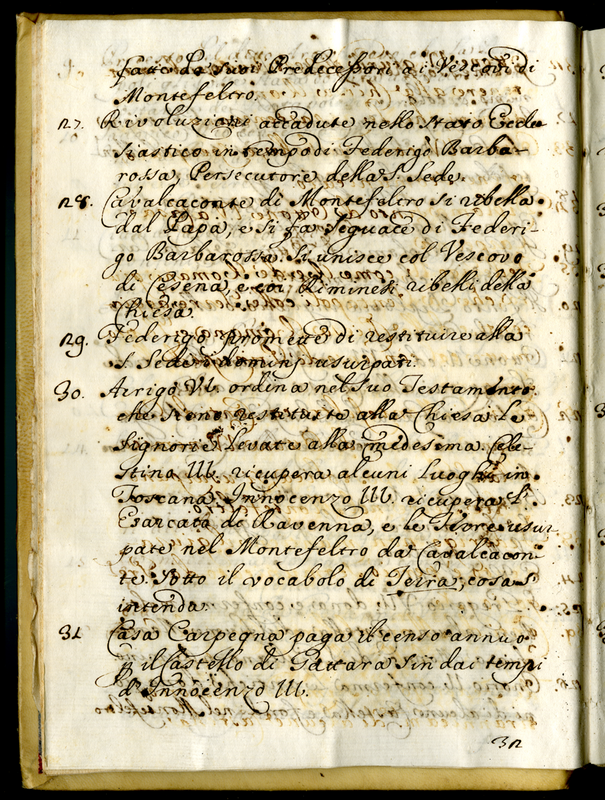 fatte da suoi Predecessori ai Vescovi di
Montefeltro.
27. Rivoluzioni accadute nello Stato Eccle-
siastico in tempo di Federigo Barba-
rossa, Persecutore della S. Sede.
28. Cavalcaconte di Montefeltro si ribella
dal Papa, e si fa seguace di Federi-
go Barbarossa. Si unisce col Vescovo
di Cesena, e coi Riminesi ribelli della
Chiesa.
29. Federigo promette di restituire alla
S. Sede i dominj usurpati.
30. Arrigo VI. ordina nel suo Testamento
che siano restituite alla Chiesa le
Signorie levate alla medesima. Cele-
stino III. ricupera alcuni Luoghi in
Toscana. Innocenzo III. ricupera l'
Esarcato di Ravenna, e le Terre usur-
pate nel Montefeltro da Cavalcacon-
te. Sotto il vocabolo di Terra, cosa s'
intenda.
31 Casa Carpegna paga il censo annuo
p il Castello di Gattara sin dai tempi
d'Innocenzo III.
32